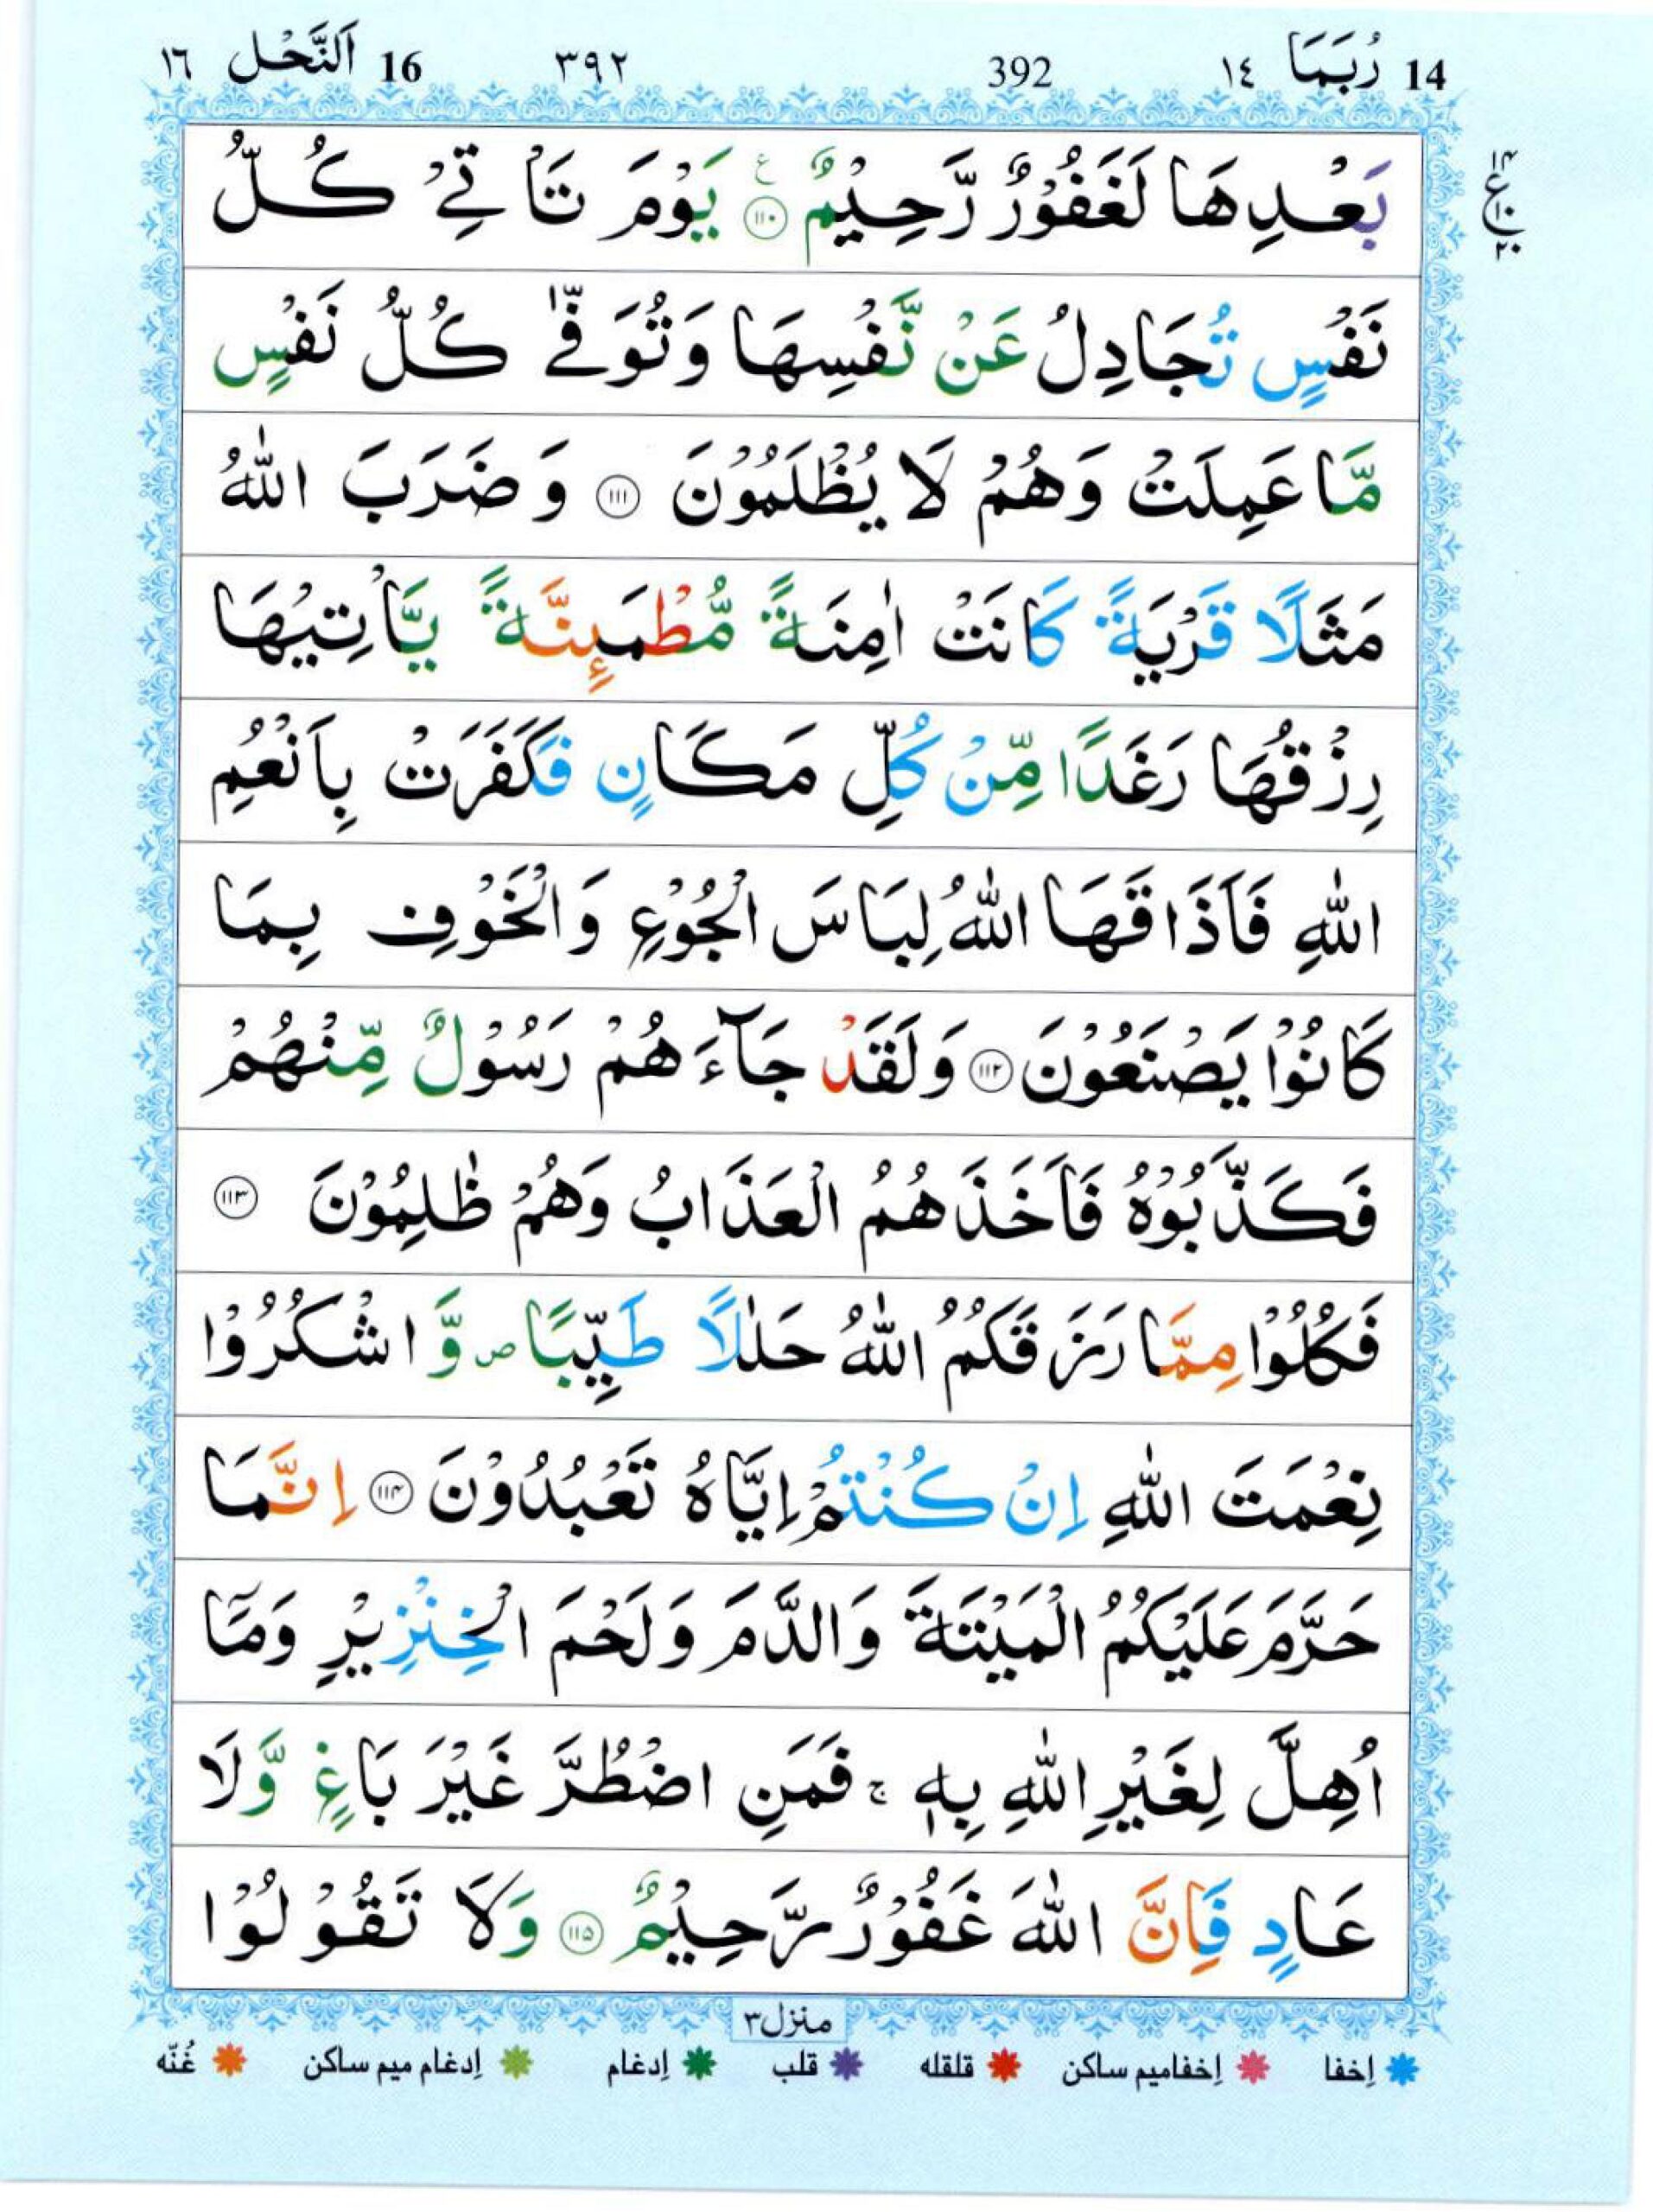 14 رُبَمَا ١٤ 392 ٣٩٢ 16 اَلنَّحْل ١٦
بَعْدِهَا لَغَفُوْرٌ رَّحِيْمٌ ﴿١١٠﴾ ع يَوْمَ تَاْتِيْ كُلُّ
نَفْسٍ تُجَادِلُ عَنْ نَّفْسِهَا وَتُوَفّٰى كُلُّ نَفْسٍ
مَّا عَمِلَتْ وَهُمْ لَا يُظْلَمُوْنَ ﴿١١١﴾ وَضَرَبَ اللّٰهُ
مَثَلًا قَرْيَةً كَانَتْ اٰمِنَةً مُّطْمَىِٕنَّةً يَّاْتِيْهَا
رِزْقُهَا رَغَدًا مِّنْ كُلِّ مَكَانٍ فَكَفَرَتْ بِاَنْعُمِ
اللّٰهِ فَاَذَاقَهَا اللّٰهُ لِبَاسَ الْجُوْعِ وَالْخَوْفِ بِمَا
كَانُوْا يَصْنَعُوْنَ ﴿١١٢﴾ وَلَقَدْ جَآءَهُمْ رَسُوْلٌ مِّنْهُمْ
فَكَذَّبُوْهُ فَاَخَذَهُمُ الْعَذَابُ وَهُمْ ظٰلِمُوْنَ ﴿١١٣﴾
فَكُلُوْا مِمَّا رَزَقَكُمُ اللّٰهُ حَلٰلًا طَيِّبًا ص وَّاشْكُرُوْا
نِعْمَتَ اللّٰهِ اِنْ كُنْتُمْ اِيَّاهُ تَعْبُدُوْنَ ﴿١١٤﴾ اِنَّمَا
حَرَّمَ عَلَيْكُمُ الْمَيْتَةَ وَالدَّمَ وَلَحْمَ الْخِنْزِيْرِ وَمَآ
اُهِلَّ لِغَيْرِ اللّٰهِ بِهٖ ج فَمَنِ اضْطُرَّ غَيْرَ بَاغٍ وَّلَا
عَادٍ فَاِنَّ اللّٰهَ غَفُوْرٌ رَّحِيْمٌ ﴿١١٥﴾ وَلَا تَقُوْلُوْا
منزل ٣
إخفا إخفاميم ساكن قلقله قلب إدغام إدغام ميم ساكن غُنّه